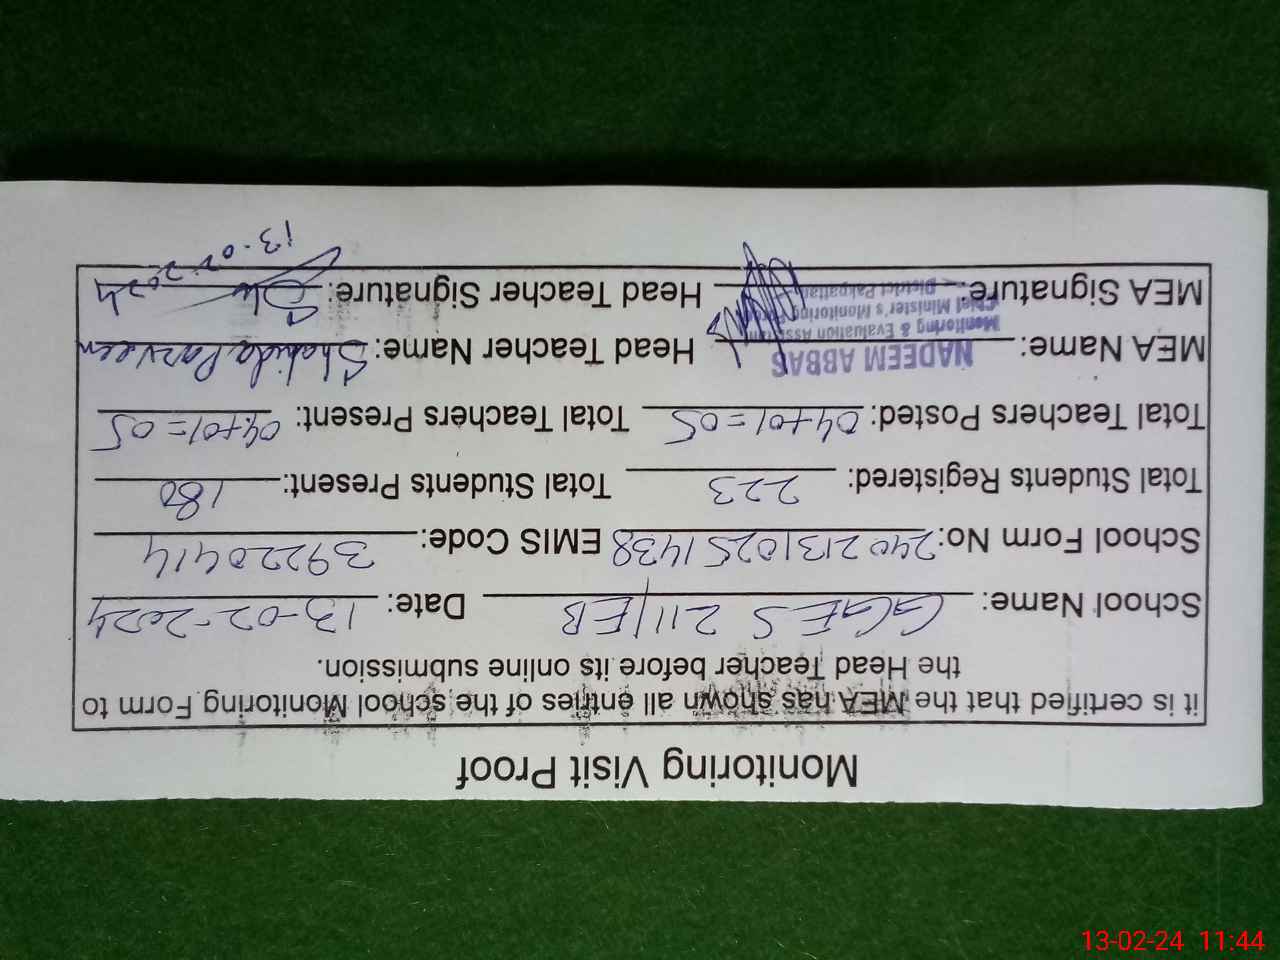 Monitoring Visit Proof
it is certified that the MEA has shown all entries of the school Monitoring Form to
the Head Teacher before its online submission.
School Name: GGES 211/EB Date: 13-02-2024
School Form No: 24021310251438 EMIS Code: 39220414
Total Students Registered: 223 Total Students Present: 180
Total Teachers Posted: 04+01=05 Total Teachers Present: 04+01=05
MEA Name: NADEEM ABBAS Head Teacher Name: Shahida Parveen
Monitoring & Evaluation Assistant
Chief Minister's Monitoring Force
District Pakpattan
MEA Signature: Head Teacher Signature:
13-02-2024
13-02-24 11:44